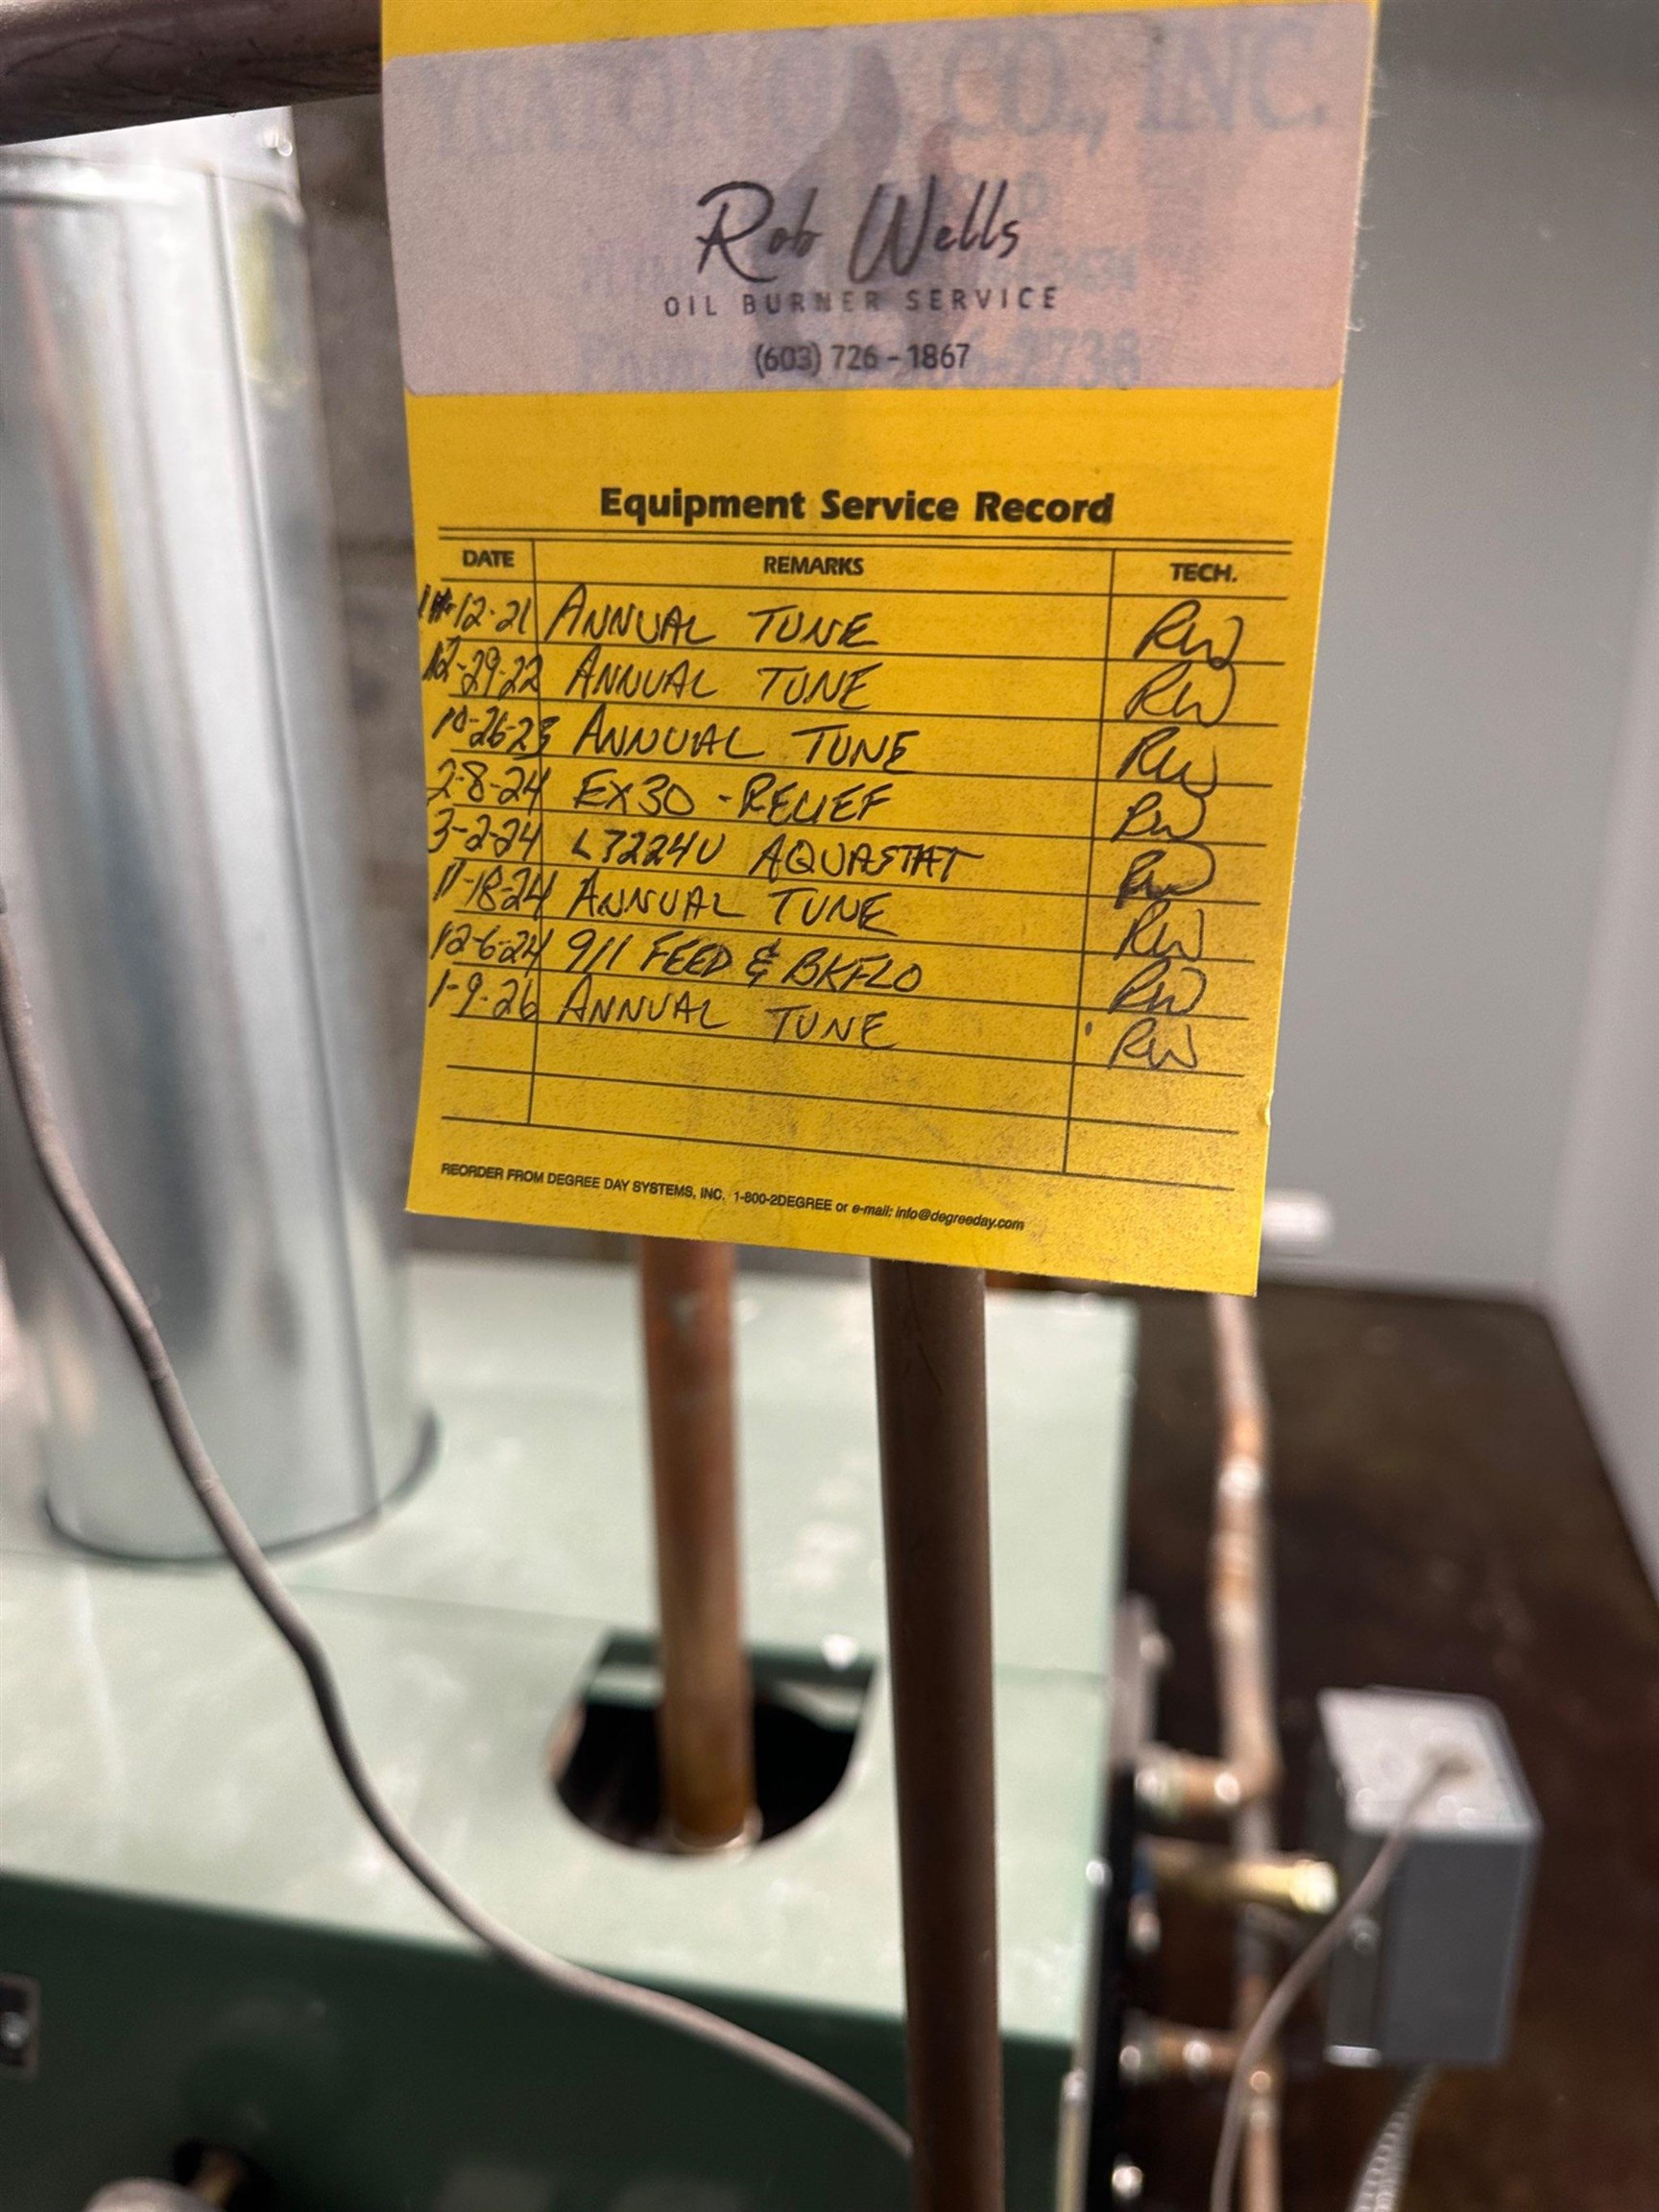 CO., INC.
Rob Wells
OIL BURNER SERVICE
(603) 726-1867
Equipment Service Record
DATE REMARKS TECH.
12-21 ANNUAL TUNE RW
12-29-22 ANNUAL TUNE RW
10-26-23 ANNUAL TUNE RW
2-8-24 EX30 - RELIEF RW
3-2-24 L7224U AQUASTAT RW
11-18-24 ANNUAL TUNE RW
12-6-24 911 FEED & BKFLO RW
1-9-26 ANNUAL TUNE RW
REORDER FROM DEGREE DAY SYSTEMS, INC. 1-800-2DEGREE or e-mail: info@degreeday.com